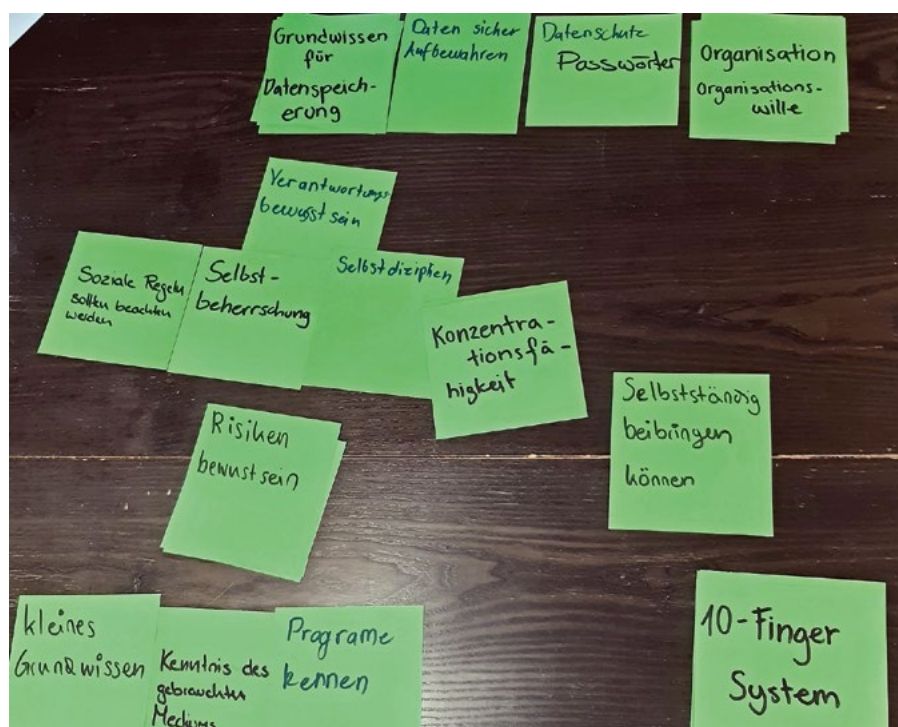 Grundwissen
für
Datenspeich-
erung
Daten sicher
Aufbewahren
Datenschutz
Passwörter
Organisation
Organisations-
wille
Verantwortungs
bewusst sein
Soziale Regeln
sollten beachten
werden
Selbst-
beherrschung
Selbstdiziplien
Konzentra-
tionsfä-
higkeit
Selbstständig
beibringen
können
Risiken
bewustsein
kleines
Grundwissen
Kenntnis des
gebrauchten
Mediums
Programe
kennen
10-Finger
System